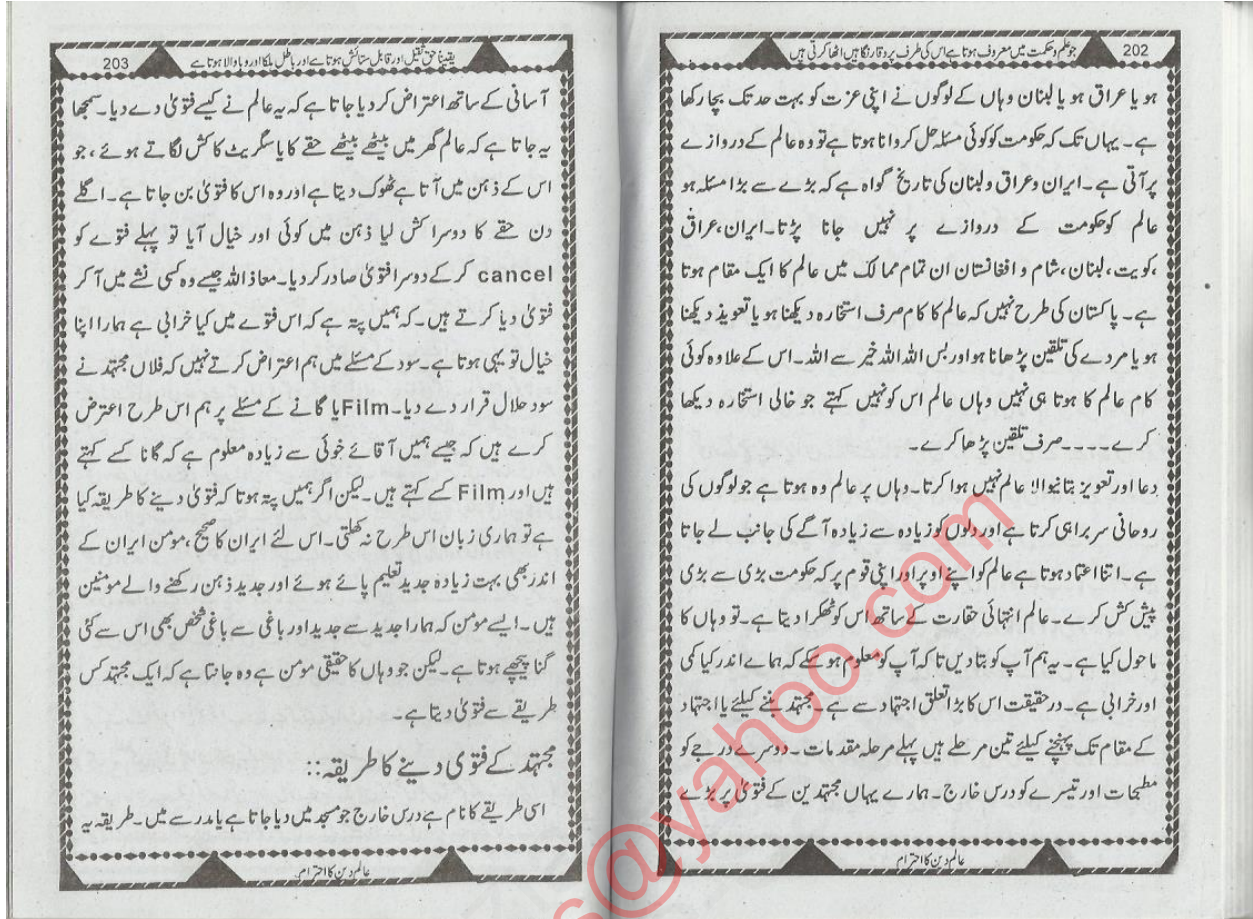 202
جو علم و حکمت میں معروف ہوتا ہے اس کی طرف پر وقار نگاہیں اٹھا کرتی ہیں
ہو یا عراق ہو یا لبنان وہاں کے لوگوں نے اپنی عزت کو بہت حد تک بچا رکھا
ہے۔ یہاں تک کہ حکومت کو کوئی مسئلہ حل کروانا ہوتا ہے تو وہ عالم کے دروازے
پر آتی ہے۔ ایران و عراق و لبنان کی تاریخ گواہ ہے کہ بڑے سے بڑا مسئلہ ہو
عالم کو حکومت کے دروازے پر نہیں جانا پڑتا۔ ایران، عراق
،کویت، لبنان، شام و افغانستان ان تمام ممالک میں عالم کا ایک مقام ہوتا
ہے۔ پاکستان کی طرح نہیں کہ عالم کا کام صرف استخارہ دیکھنا ہو یا تعویذ دیکھنا
ہو یا مردے کی تلقین پڑھانا ہو اور بس اللہ اللہ خیر سے اللہ۔ اس کے علاوہ کوئی
کام عالم کا ہوتا ہی نہیں وہاں عالم اس کو نہیں کہتے جو خالی استخارہ دیکھا
کرے۔۔۔۔ صرف تلقین پڑھا کرے۔
دعا اور تعویز بتانیوالا عالم نہیں ہوا کرتا۔ وہاں پر عالم وہ ہوتا ہے جو لوگوں کی
روحانی سربراہی کرتا ہے اور دلوں کو زیادہ سے زیادہ آگے کی جانب لے جاتا
ہے۔ اتنا اعتماد ہوتا ہے عالم کو اپنے اوپر اور اپنی قوم پر کہ حکومت بڑی سے بڑی
پیش کش کرے۔ عالم انتہائی حقارت کے ساتھ اس کو ٹھکرا دیتا ہے۔ تو وہاں کا
ماحول کیا ہے۔ یہ ہم آپ کو بتا دیں تاکہ آپ کو معلوم ہو سکے کہ ہمارے اندر کیا کمی
اور خرابی ہے۔ در حقیقت اس کا بڑا تعلق اجتہاد سے ہے۔ مجتہد بننے کیلئے یا اجتہاد
کے مقام تک پہنچنے کیلئے تین مرحلے ہیں پہلے مرحلہ مقدمات۔ دوسرے درجے کو
مطبحات اور تیسرے کو درس خارج۔ ہمارے یہاں مجتہدین کے فتویٰ پر بڑے
عالم دین کا احترام
203
یقیناً حق ثقیل اور قابل ستائش ہوتا ہے اور باطل ہلکا اور وبا والا ہوتا ہے
آسانی کے ساتھ اعتراض کر دیا جاتا ہے کہ یہ عالم نے کیسے فتویٰ دے دیا۔ سمجھا
یہ جاتا ہے کہ عالم گھر میں بیٹھے بیٹھے حقے کا یا سگریٹ کا کش لگاتے ہوئے، جو
اس کے ذہن میں آتا ہے ٹھوک دیتا ہے اور وہ اس کا فتویٰ بن جاتا ہے۔ اگلے
دن حقے کا دوسرا کش لیا ذہن میں کوئی اور خیال آیا تو پہلے فتوے کو
cancel کر کے دوسرا فتویٰ صادر کر دیا۔ معاذ اللہ جیسے وہ کسی نشے میں آ کر
فتویٰ دیا کرتے ہیں۔ کہ ہمیں پتہ ہے کہ اس فتوے میں کیا خرابی ہے ہمارا اپنا
خیال تو یہی ہوتا ہے۔ سود کے مسئلے میں ہم اعتراض کرتے نہیں کہ فلاں مجتہد نے
سود حلال قرار دے دیا۔ Film یا گانے کے مسئلے پر ہم اس طرح اعترض
کرے ہیں کہ جیسے ہمیں آقائے خوئی سے زیادہ معلوم ہے کہ گانا کسے کہتے
ہیں اور Film کسے کہتے ہیں۔ لیکن اگر ہمیں پتہ ہوتا کہ فتویٰ دینے کا طریقہ کیا
ہے تو ہماری زبان اس طرح نہ کھلتی۔ اس لئے ایران کا صحیح، مومن ایران کے
اندر بھی بہت زیادہ جدید تعلیم پائے ہوئے اور جدید ذہن رکھنے والے مومنین
ہیں۔ ایسے مومن کہ ہمارا جدید سے جدید اور باغی سے باغی شخص بھی اس سے کئی
گنا پیچھے ہوتا ہے۔ لیکن جو وہاں کا حقیقی مومن ہے وہ جانتا ہے کہ ایک مجتہد کس
طریقے سے فتویٰ دیتا ہے۔
مجتہد کے فتویٰ دینے کا طریقہ::
اسی طریقے کا نام ہے درس خارج جو مسجد میں دیا جاتا ہے یا مدرسے میں۔ طریقہ یہ
عالم دین کا احترام
s@yahoo.com